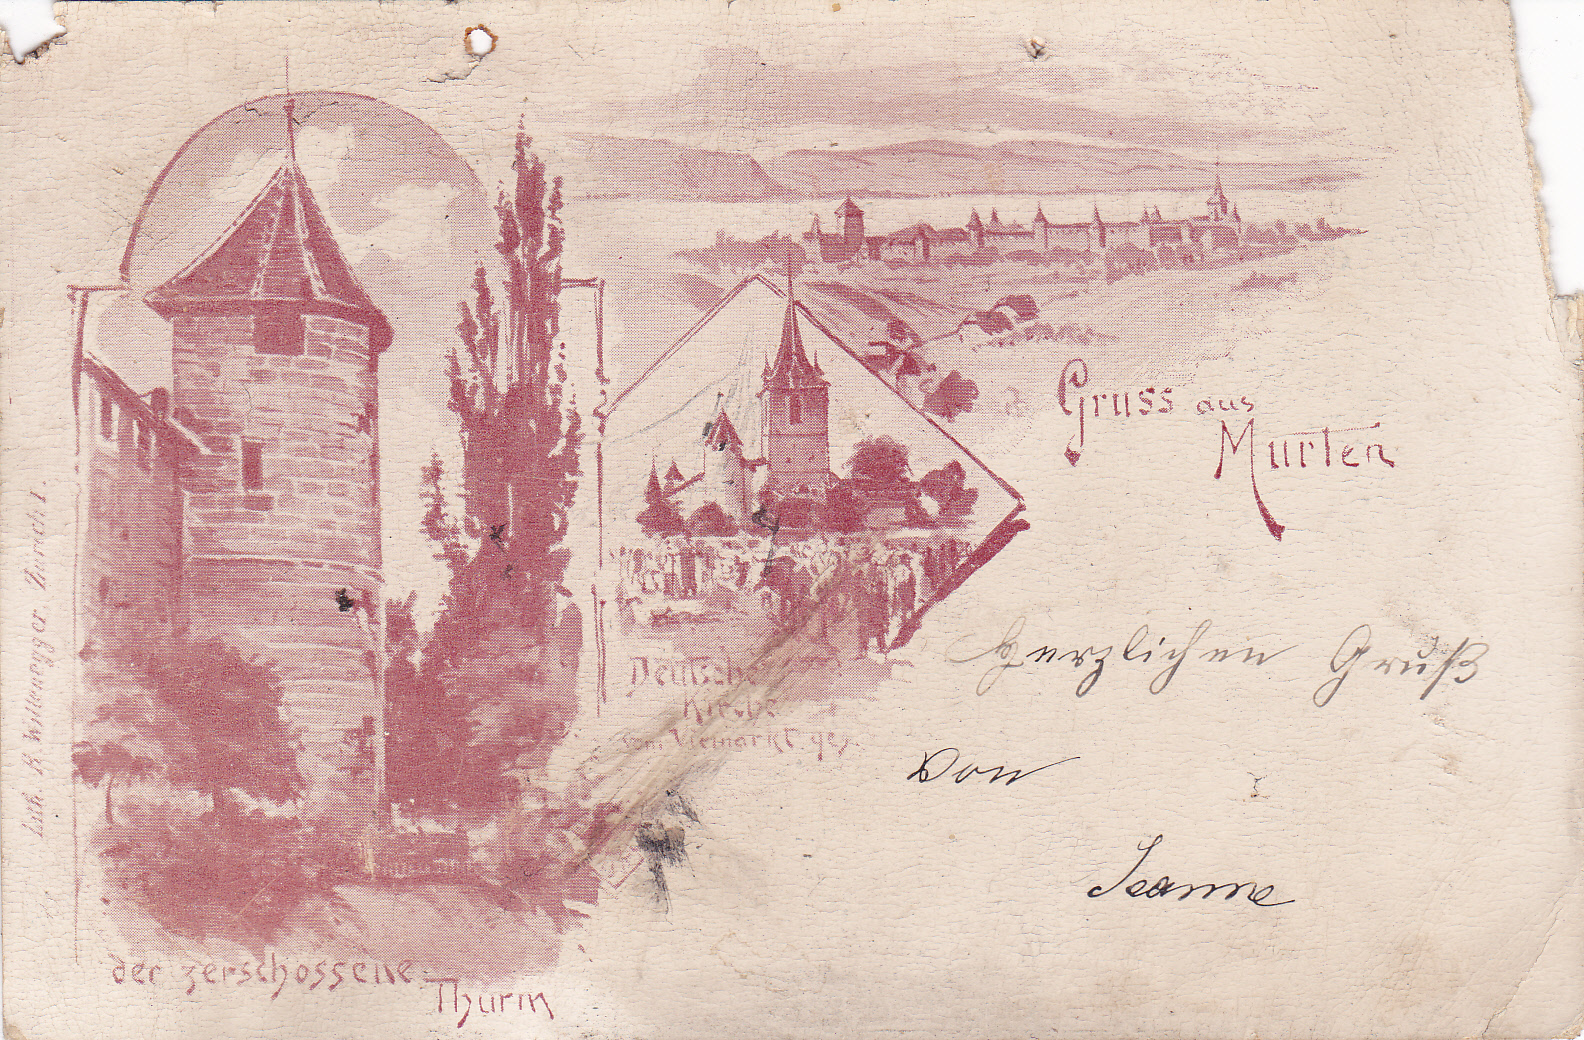 Gruss aus
Murten
Deutsche
Kirche
vom Viemarkt ges.
der zerschossene
Thurm
Herzlichen Gruß
von
Jeanne
Lith. R. Willenegger. Zürich. I.